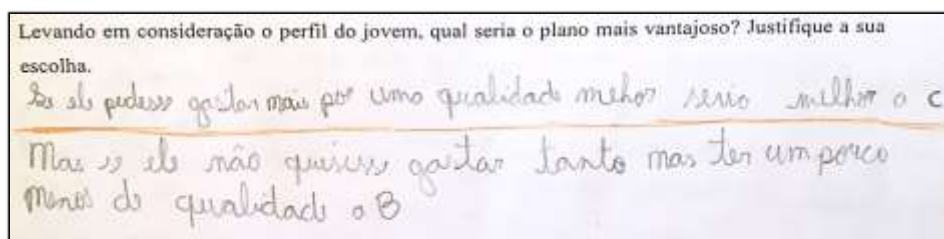 Levando em consideração o perfil do jovem, qual seria o plano mais vantajoso? Justifique a sua
escolha.
Se ele pudesse gastar mais por uma qualidade mehor seria melhor o C
Mas se ele não quisesse gastar tanto mas ter um poco
menos de qualidade o B